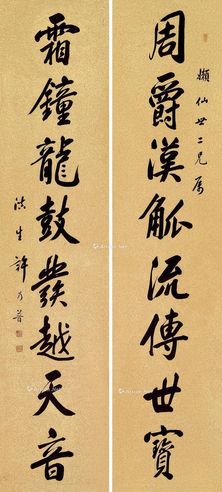 周爵漢觚流傳世寶
嬾仙世二兄屬
霜鐘龍鼓發越天音
滇生許乃普